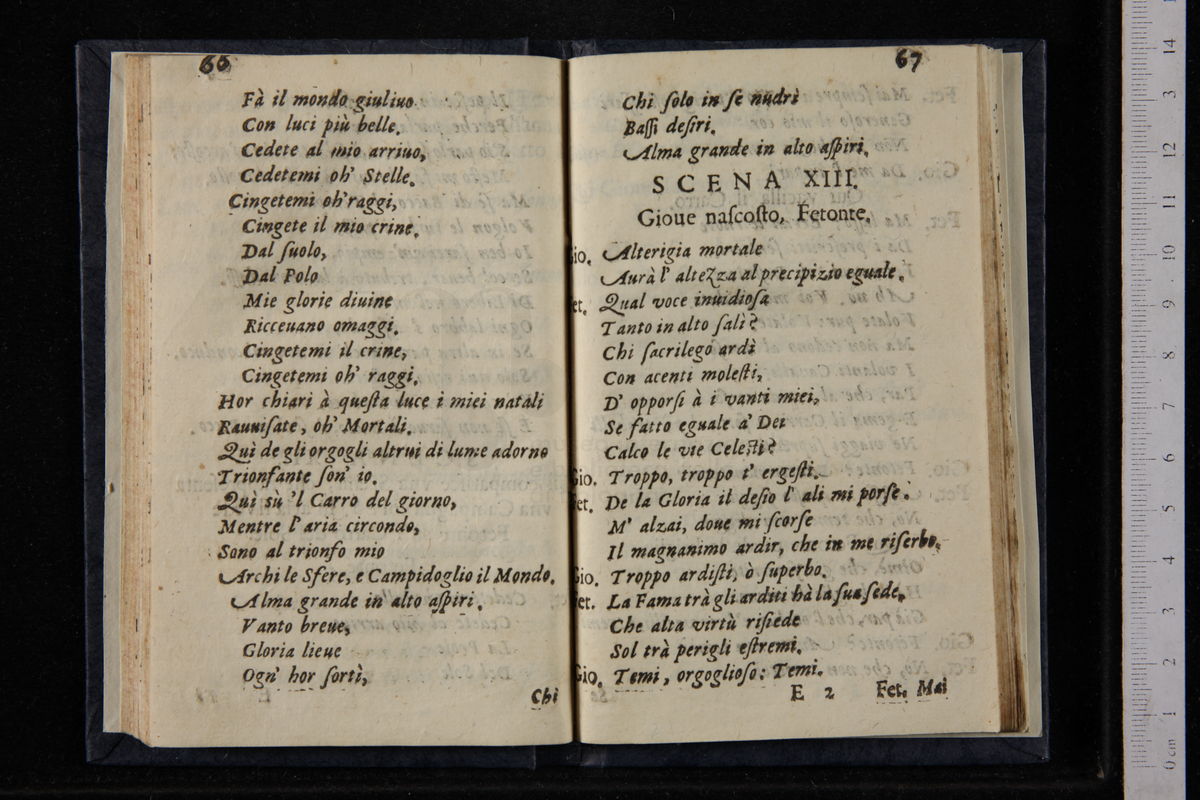 66
Fà il mondo giuliuo
Con luci più belle.
Cedete al mio arriuo,
Cedetemi oh' Stelle.
Cingetemi oh' raggi,
Cingete il mio crine.
Dal ſuolo,
Dal Polo
Mie glorie diuine
Ricceuano omaggi.
Cingetemi il crine,
Cingetemi oh' raggi.
Hor chiari à queſta luce i miei natali
Rauuiſate, oh' Mortali.
Quì de gli orgogli altrui di lume adorno
Trionfante ſon' io.
Quì sù 'l Carro del giorno,
Mentre l' aria circondo,
Sono al trionfo mio
Archi le Sfere, e Campidoglio il Mondo.
Alma grande in alto aſpiri.
Vanto breue,
Gloria lieue
Ogn' hor ſortì,
Chi
67
Chi ſolo in ſe nudrì
Baſſi deſiri.
Alma grande in alto aſpiri.
SCENA XIII.
Gioue naſcoſto, Fetonte.
Gio. Alterigia mortale
Aurà l' altezza al precipizio eguale.
Fet. Qual voce inuidioſa
Tanto in alto ſalì?
Chi ſacrilego ardì
Con acenti moleſti,
D' opporſi à i vanti miei,
Se fatto eguale a' Dei
Calco le vie Celeſti?
Gio. Troppo, troppo t' ergeſti.
Fet. De la Gloria il deſio l' ali mi porſe.
M' alzai, doue mi ſcorſe
Il magnanimo ardir, che in me riſerbo.
Gio. Troppo ardiſti, ò ſuperbo.
Fet. La Fama trà gli arditi hà la ſua ſede,
Che alta virtù riſiede
Sol trà perigli eſtremi.
Gio. Temi, orgoglioſo: Temi.
E 2 Fet. Mai
14
3
12
11
10
9
8
7
6
5
4
3
2
1
0 cm